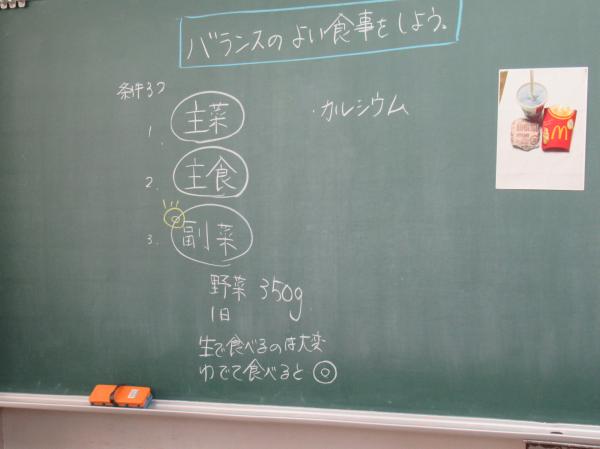 バランスのよい食事をしよう。
条件3つ
1. 主菜
・カルシウム
2. 主食
3. ◎副菜
野菜 350g
1日
生で食べるのは大変
ゆでて食べると ◎